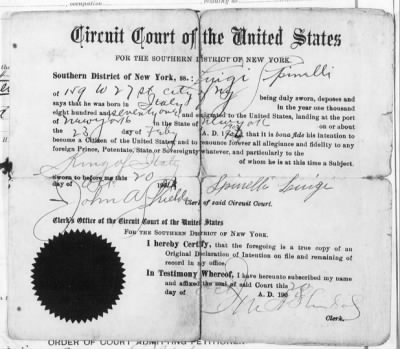 Circuit Court of the United States
FOR THE SOUTHERN DISTRICT OF NEW YORK.
Southern District of New York, ss.: Luigi Spinelli
of 159 W 27 st. city of NY being duly sworn, deposes and
says that he was born in Italy in the year one thousand
eight hundred and seventy and emigrated to the United States, landing at the port
of New york in the State of New york on or about
the 23 day of Feb A. D. that it is bona fide his intention to
become a Citizen of the United States and to renounce forever all allegiance and fidelity to any
foreign Prince, Potentate, State or Sovereignty whatever, and particularly to the
King of Italy of whom he is at this time a Subject.
Sworn to before me this 20
day of 190 Spinelli Luigi
John A Shields Clerk of said Circuit Court.
Clerk's Office of the Circuit Court of the United States
FOR THE SOUTHERN DISTRICT OF NEW YORK.
I hereby Certify, that the foregoing is a true copy of an
Original Declaration of Intention on file and remaining of
record in my office.
In Testimony Whereof, I have hereunto subscribed my name
and affixed the seal of said Court this 20
day of A. D. 190
Clerk.
ORDER OF COURT ADMITTING PETITIONER